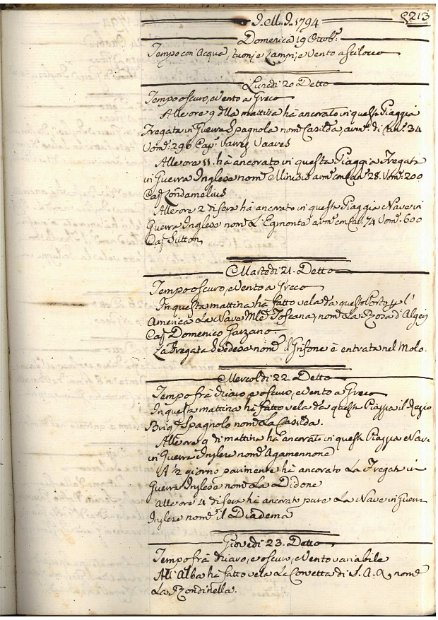 A. M. D. 1794
213
Domenica 19 Ottob.
Tempo con Acqua, tuoni e Lampi, e Vento a Scilocco
Lunedì 20 Detto
Tempo oscuro, e Vento a Greco
Alle ore 9 della mattina hà ancorato in questa Piaggia
Fregata in Guerra Spagnola nom. Casilda arm. di Can. 34
Vom. 296 Cap.
Alle ore 11. hà ancorato in questa Piaggia Fregata
in Guerra Inglese nom. arm. em Can. 28. Vom. 200
Cap.
Alle ore 2 di sera hà ancorato in questa Piaggia Nave in
Guerra Inglese nom. L'Egmont arm. em Can. 74 Vom. 600
Cap. Sutton
Martedì 21. Detto
Tempo oscuro, e Vento a Greco
In questa mattina hà fatto vela da questo Porto p. l'
America La Nave Toscana, nom. La di
Cap. Domenico
La Fregata nom. è entrata nel Molo.
Mercoldì 22. Detto
Tempo frà Chiaro, e oscuro, e Vento a Greco
In questa mattina hà fatto vela da questa Piaggia il
Brig. Spagnolo nom. La Casilda.
Alle ore 9 di mattina hà ancorato in questa Piaggia Nave
in Guerra Inglese nom. Agamennone
A ½ giorno parimente hà ancorato La Fregata in
Guerra Inglese nom. La Didone
alle ore 4 di sera hà ancorato pure La Nave in Guerra
Inglese nom. il Diadema
Giovedì 23. Detto
Tempo frà Chiaro, e oscuro, e Vento variabile
All'Alba hà fatto vela La Corvetta di S. A. R. nom.
La Rondinella.